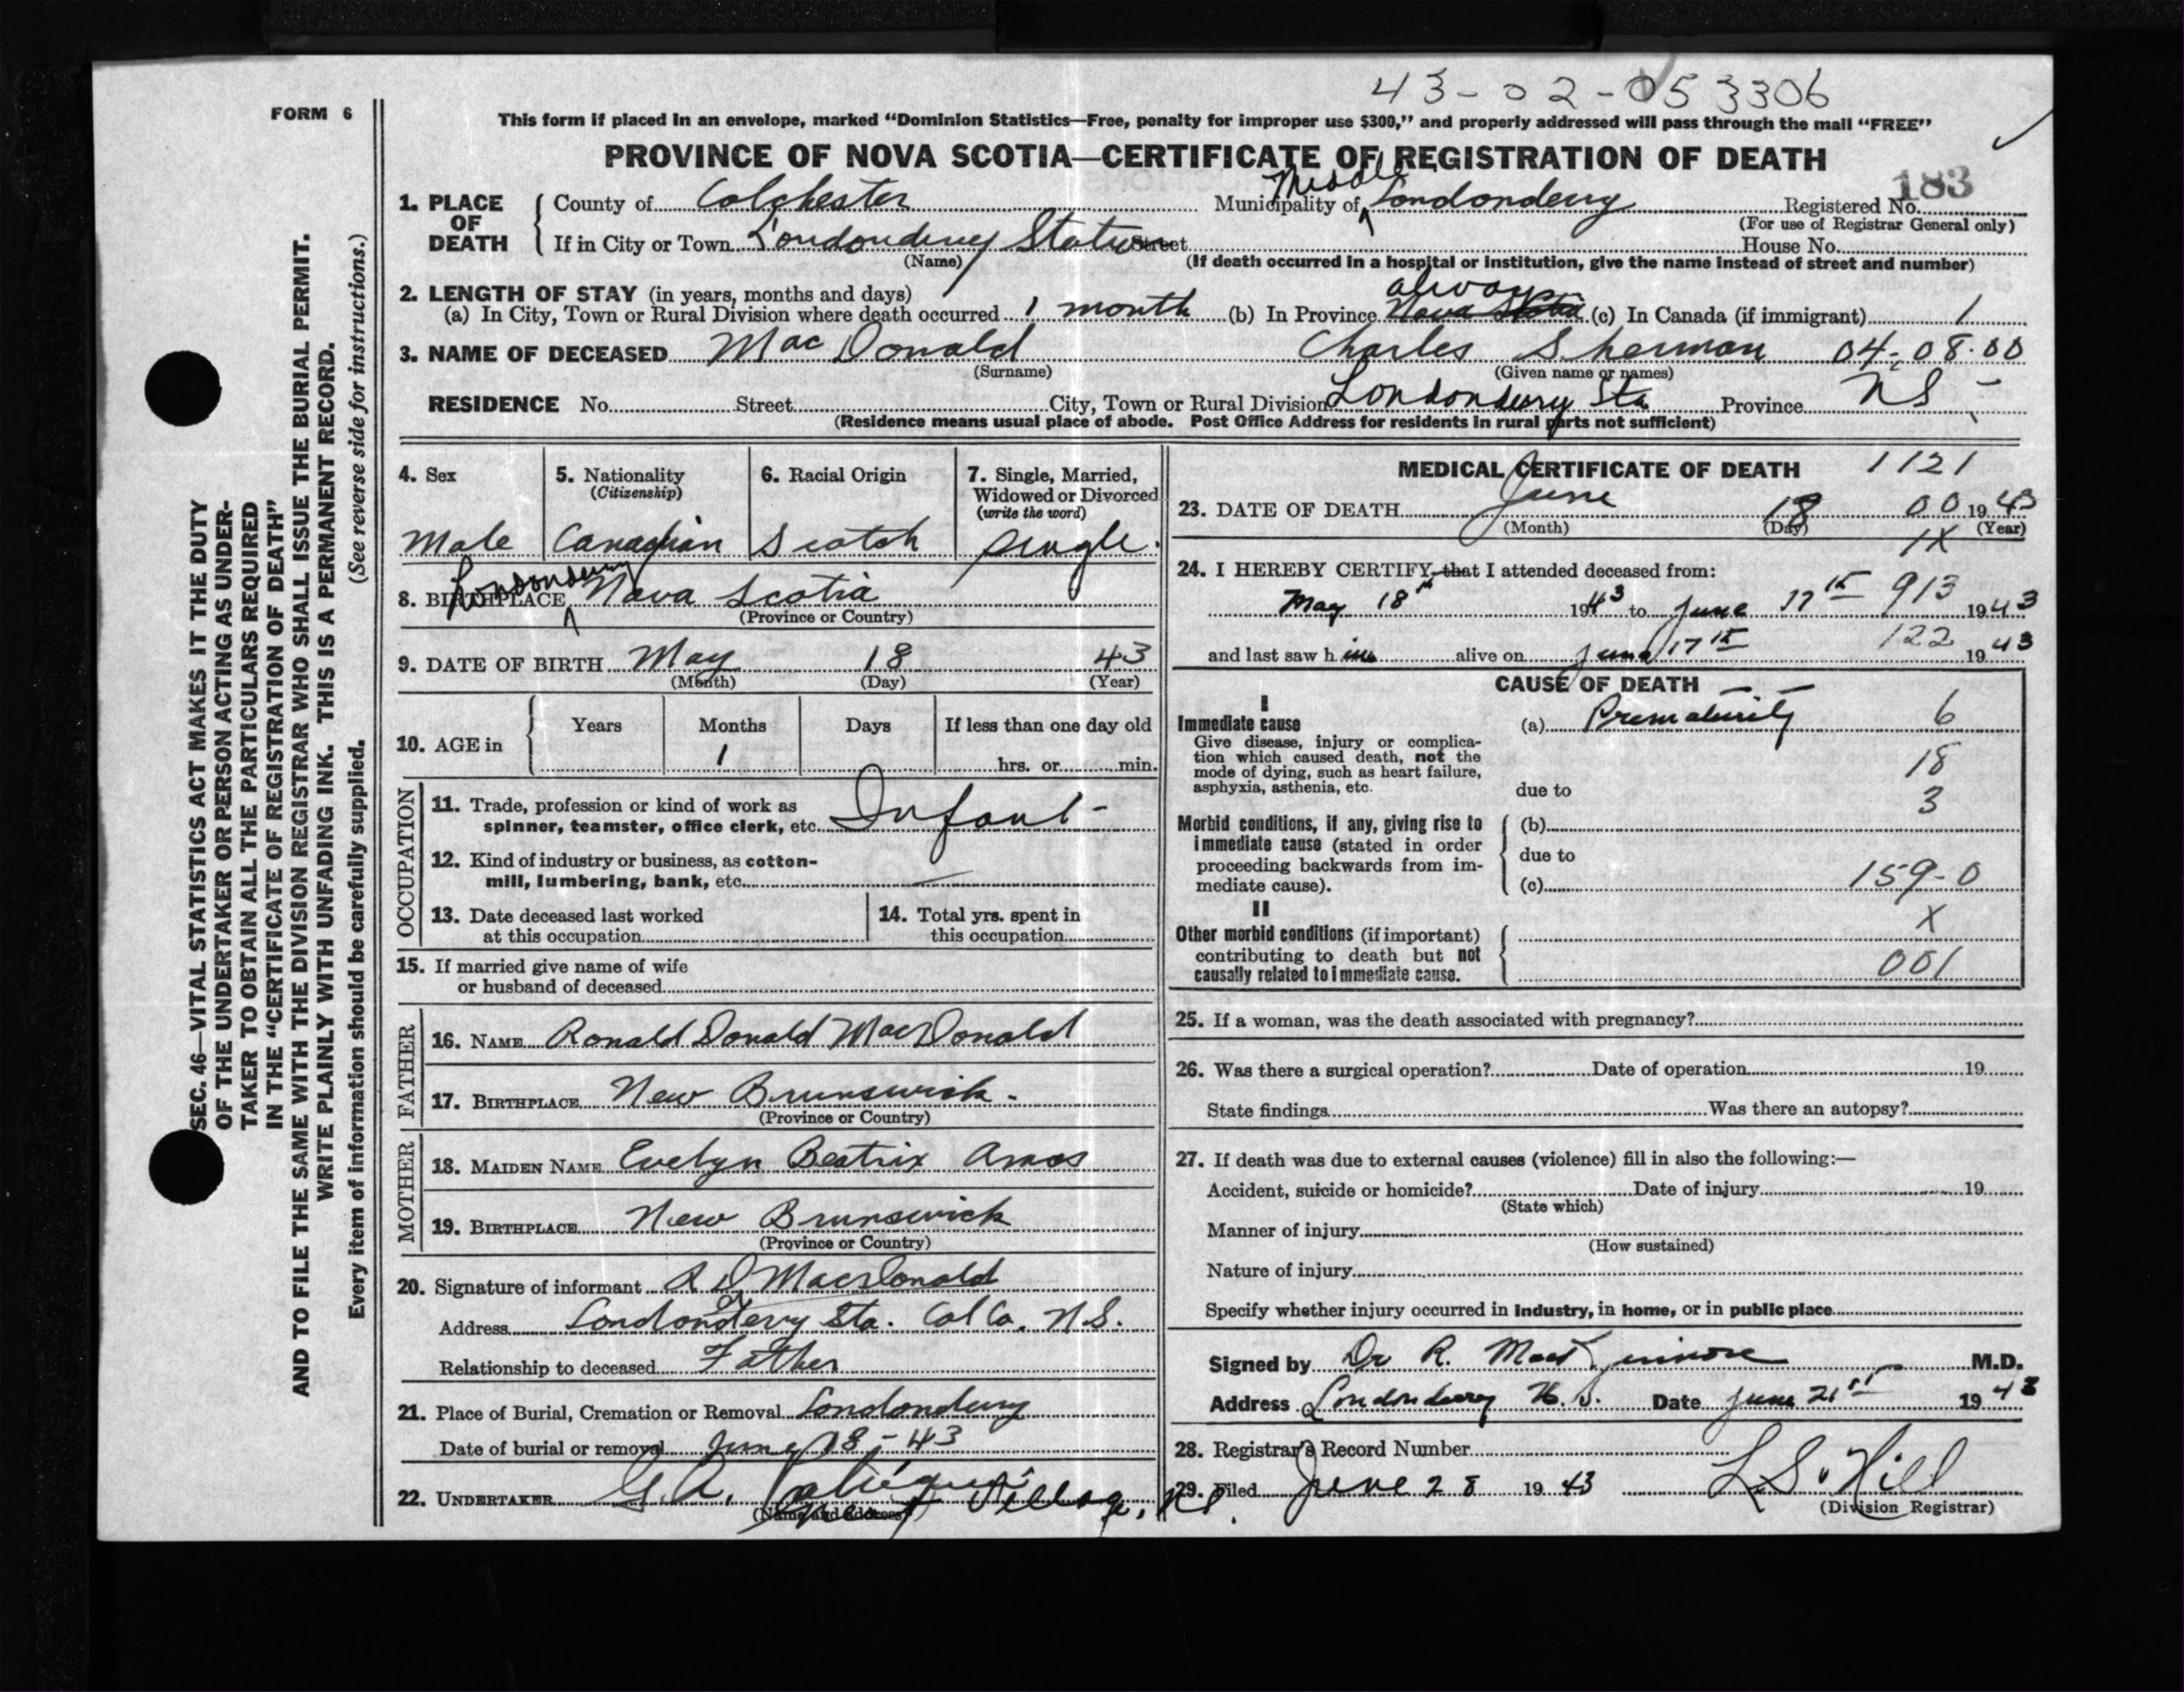 43-02-053306
FORM 6
This form if placed in an envelope, marked "Dominion Statistics—Free, penalty for improper use $300," and properly addressed will pass through the mail "FREE"
PROVINCE OF NOVA SCOTIA—CERTIFICATE OF REGISTRATION OF DEATH
183
1. PLACE OF DEATH
County of Colchester Municipality of Middle Londonderry Registered No.
(For use of Registrar General only)
If in City or Town Londonderry Station Street House No.
(Name) (If death occurred in a hospital or institution, give the name instead of street and number)
2. LENGTH OF STAY (in years, months and days)
(a) In City, Town or Rural Division where death occurred 1 month (b) In Province always Nova Scotia (c) In Canada (if immigrant) 1
3. NAME OF DECEASED MacDonald Charles Sherman 04-08-00
(Surname) (Given name or names)
RESIDENCE No. Street City, Town or Rural Division Londonderry Sta Province NS
(Residence means usual place of abode. Post Office Address for residents in rural parts not sufficient)
4. Sex
Male
5. Nationality
(Citizenship)
Canadian
6. Racial Origin
Scotch
7. Single, Married,
Widowed or Divorced
(write the word)
Single.
8. BIRTHPLACE Londonderry Nova Scotia
(Province or Country)
9. DATE OF BIRTH May 18 43
(Month) (Day) (Year)
10. AGE in Years Months Days If less than one day old
1 hrs. or min.
OCCUPATION
11. Trade, profession or kind of work as
spinner, teamster, office clerk, etc. Infant
12. Kind of industry or business, as cotton-
mill, lumbering, bank, etc.
13. Date deceased last worked
at this occupation
14. Total yrs. spent in
this occupation
15. If married give name of wife
or husband of deceased
FATHER
16. NAME Ronald Donald MacDonald
17. BIRTHPLACE New Brunswick.
(Province or Country)
MOTHER
18. MAIDEN NAME Evelyn Beatrix Amos
19. BIRTHPLACE New Brunswick
(Province or Country)
20. Signature of informant R D MacDonald
Address Londonderry Sta. Col Co. N.S.
Relationship to deceased Father
21. Place of Burial, Cremation or Removal Londonderry
Date of burial or removal June 18-43
22. UNDERTAKER G.A.
(Name and address) Village, NS.
MEDICAL CERTIFICATE OF DEATH 1121
23. DATE OF DEATH June 18 00 1943
(Month) (Day) (Year)
1X
24. I HEREBY CERTIFY that I attended deceased from:
May 18th 1943 to June 17th 913 1943
and last saw him alive on June 17th 122 1943
CAUSE OF DEATH
I
Immediate cause (a) Prematurity 6
Give disease, injury or complica-
tion which caused death, not the
mode of dying, such as heart failure,
asphyxia, asthenia, etc.
18
due to
3
Morbid conditions, if any, giving rise to
immediate cause (stated in order
proceeding backwards from im-
mediate cause).
(b)
due to
(c) 159-0
II
X
Other morbid conditions (if important)
contributing to death but not
causally related to immediate cause.
001
25. If a woman, was the death associated with pregnancy?
26. Was there a surgical operation? Date of operation 19
State findings Was there an autopsy?
27. If death was due to external causes (violence) fill in also the following:—
Accident, suicide or homicide? Date of injury 19
(State which)
Manner of injury
(How sustained)
Nature of injury
Specify whether injury occurred in industry, in home, or in public place
Signed by Dr R. M.D.
Address Londonderry N.S. Date June 21st 1943
28. Registrar's Record Number
29. Filed June 28 1943 L.S. Hill
(Division Registrar)
SEC. 46—VITAL STATISTICS ACT MAKES IT THE DUTY
OF THE UNDERTAKER OR PERSON ACTING AS UNDER-
TAKER TO OBTAIN ALL THE PARTICULARS REQUIRED
IN THE "CERTIFICATE OF REGISTRATION OF DEATH"
AND TO FILE THE SAME WITH THE DIVISION REGISTRAR WHO SHALL ISSUE THE BURIAL PERMIT.
WRITE PLAINLY WITH UNFADING INK. THIS IS A PERMANENT RECORD.
Every item of information should be carefully supplied. (See reverse side for instructions.)